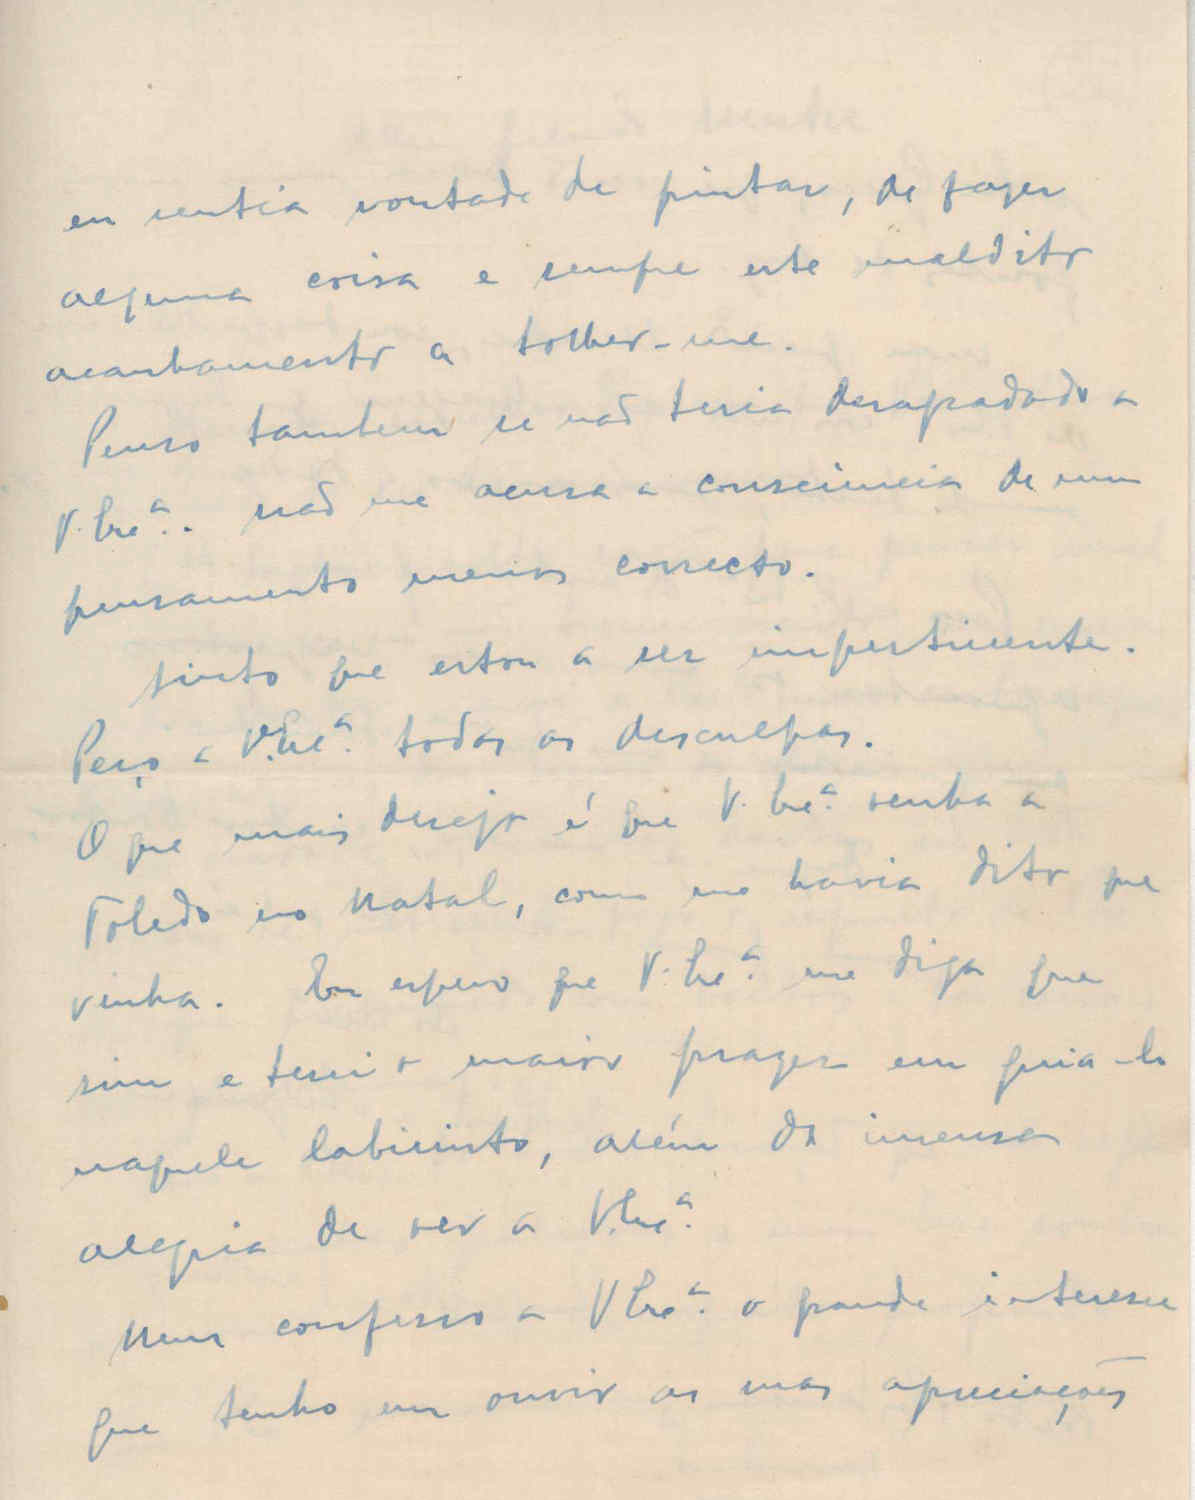 eu sentia vontade de pintar, de fazer
alguma coisa e sempre este maldito
acanhamento a tolher-me.
Penso tambem se não teria desagradado a
V. Exª. não me acusa a consciencia de um
pensamento menos correcto.
Sinto que estou a ser impertinente.
Peço a V. Exª. todas as desculpas.
O que mais desejo é que V. Exª. venha a
Toledo no Natal, como me havia dito que
vinha. Eu espero que V. Exª. me diga que
sim e terei o maior prazer em guia-lo
naquele labirinto, além da imensa
alegria de ver a V. Exª.
Nem confesso a V Exª. o grande interesse
que tenho em ouvir as suas apreciações